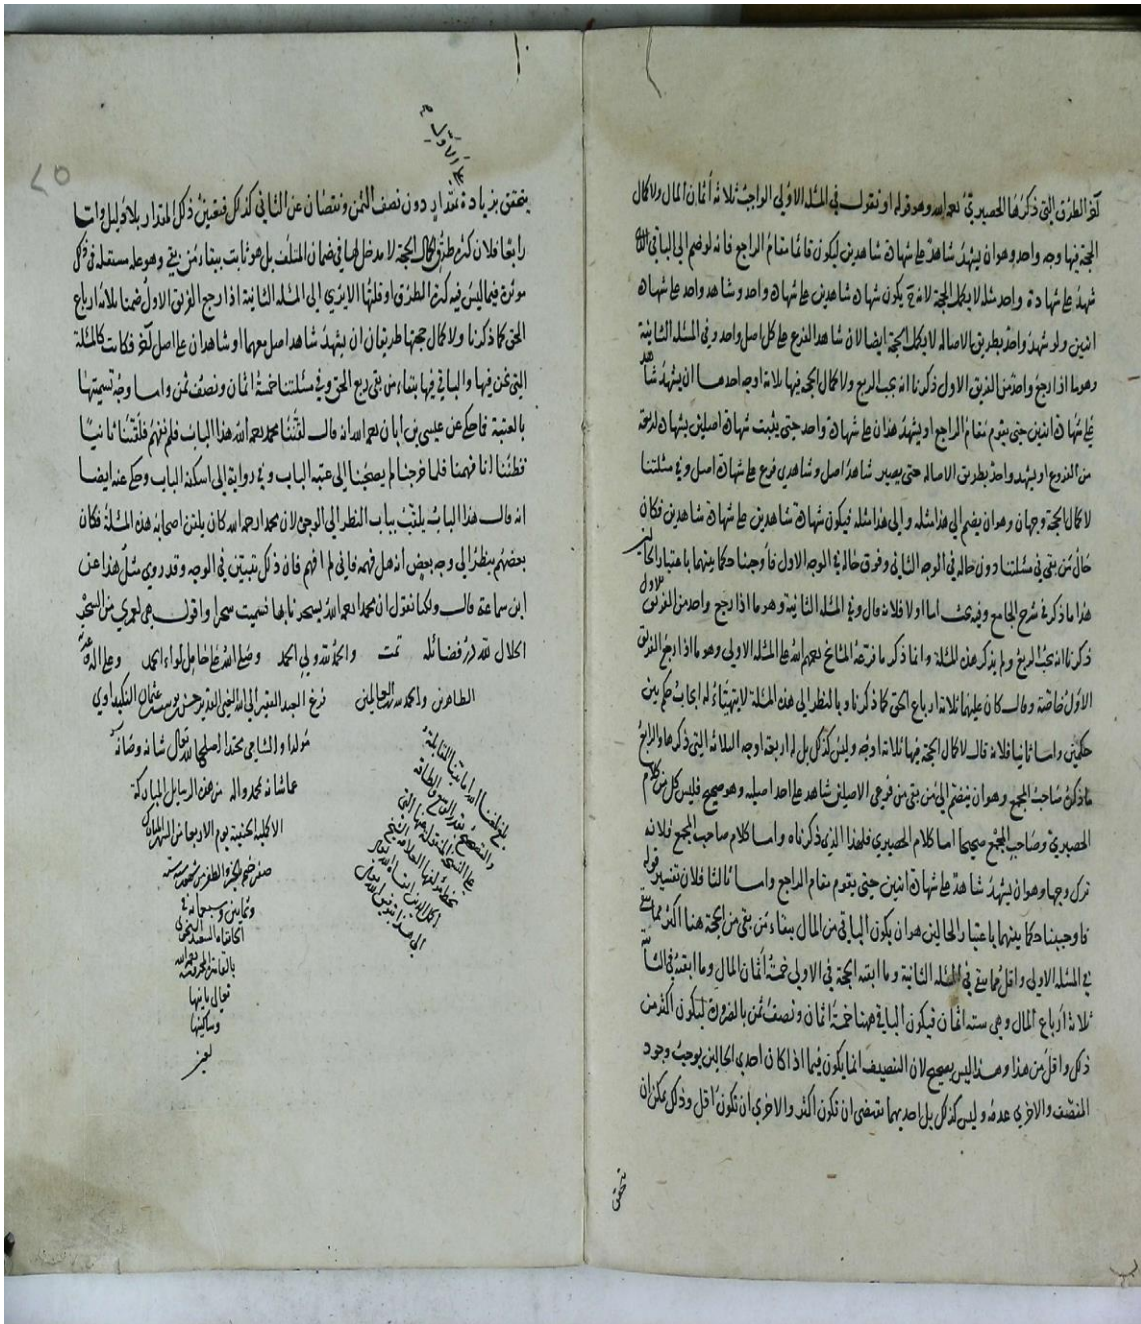 الطرق التي ذكرها الحصيري رحمه الله وهو قوله او نقول في المسئلة الاولى الواجب ثلاثة أثمان المال ولاكمال
الحجة فيها وجه واحد وهو ان يشهد شاهد على شهادة شاهدين ليكون قائما مقام الراجع فانه لو ضم الى الباقي
شهد على شهادة واحد مثله لا يكمل الحجة لانه يكون شهادة شاهدين على شهادة واحد وشاهد واحد على شهادة
اثنين ولو شهد واحد بطريق الاصالة لا يكمل الحجة ايضا لان شاهد الفرع على كل اصل واحد وفي المسئلة الثانية
وهو ما اذا رجع واحد من الفريق الاول ذكرنا انه يجب الربع ولاكمال الحجة فيها ثلاثة اوجه احدها ان يشهد شاهد
على شهادة اثنين حتى يقوم مقام الراجع او يشهد هذان على شهادة واحد حتى يثبت شهادة اصلين بشهادة
من الفروع او يشهد واحد بطريق الاصالة حتى يصير شاهد اصل وشاهدي فرع على شهادة اصل وفي مسئلتنا
لاكمال الحجة وجهان وهو ان يضم الى هذا مثله والى هذا مثله فيكون شهادة شاهدين على شهادة شاهدين فكان
حال من بقي في مسئلتنا دون حاله في الوجه الثاني وفوق حاله في الوجه الاول فأوجبنا حكما بينهما باعتبار الحالين
هذا ما ذكر في شرح الجامع وفيه بحث اما اولا فلانه قال وفي المسئلة الثانية وهو ما اذا رجع واحد من الفريق الاول
ذكرنا انه يجب الربع ولم يذكر هذه المسئلة وانما ذكر ما فرعه المشايخ رحمهم الله على المسئلة الاولى وهو ما اذا رجع الفريق
الاول خاصة وقال كان عليهما ثلاثة ارباع الحق كما ذكرنا وبالنظر الى هذه المسئلة لا يتهيأ له ايجاب حكم بين
حكمين واما ثانيا فلانه قال لاكمال الحجة فيها ثلاثة اوجه وليس كذلك بل له اربعة اوجه الثلاثة التي ذكرها والرابع
ما ذكره صاحب المجمع وهو ان ينضم الى من بقي من فرعي الاصلين شاهد على احد اصليه وهو صحيح فليس كل من كلام
الحصيري وصاحب المجمع صحيحا اما كلام الحصيري فلهذا الذي ذكرناه واما كلام صاحب المجمع فلانه
ترك وجها وهو ان يشهد شاهد على شهادة اثنين حتى يقوم مقام الراجع واما ثالثا فلان تفسير قوله
فاوجبنا حكما بينهما باعتبار الحالين هو ان يكون الباقي من المال ببقاء من بقي من الحجة هنا اكثر مما بقي
في المسئلة الاولى واقل مما بقي في المسئلة الثانية وما ابقته الحجة في الاولى خمسة أثمان المال وما ابقته في الثانية
ثلاثة أرباع المال وهي ستة اثمان فيكون الباقي ههنا خمسة اثمان ونصف ثمن بالضرورة ليكون اكثر من
ذلك واقل من هذا وهذا ليس بصحيح لان التنصيف انما يكون فيما اذا كان احدى الحالين يوجب وجود
المنصف والاخرى عدمه وليس كذلك بل احديهما تقتضي ان تكون اكثر والاخرى ان تكون اقل وذلك يمكن ان
يتحقق
على الاول
يتحقق بزيادة مقدار دون نصف الثمن ونقصان عن الثاني كذلك فتعيين ذلك المقدار بلا دليل واما
رابعا فلان كثرة طرق اكمال الحجة لا مدخل لها في ضمان المتلف بل هو ثابت ببقاء من بقي وهو علة مستقلة في ذلك
موثرة فيما ليس فيه كثرة الطرق او قلتها الا يرى الى المسئلة الثانية اذا رجع الفريق الاول ضمنا ثلاثة ارباع
الحق كما ذكرنا ولاكمال حجتها طريقان ان يشهد شاهد اصل معهما او شاهدان على اصل آخر فكانت كالمسئلة
التي نحن فيها والباقي فيها ببقاء من بقي ربع الحق وفي مسئلتنا خمسة اثمان ونصف ثمن واما وجه تسميتها
بالعتبة فما حكي عن عيسى بن ابان رحمه الله انه قال لقننا محمد رحمه الله هذا الباب فلم نفهم فلقننا ثانيا
فظننا انا فهمنا فلما خرجنا لم يصحبنا الى عتبة الباب وفي رواية الى اسكفة الباب وحكي عنه ايضا
انه قال هذا الباب يلقب بباب النظر الى الوجوه لان محمدا رحمه الله كان يلقن اصحابه هذه المسئلة فكان
بعضهم ينظر الى وجه بعض أنه هل فهمه فاني لم افهم فان ذلك يتبين في الوجه وقد روي مثل هذا عن
ابن سماعة قال ولكنا نقول ان محمدا رحمه الله يسحرنا بها فسميت سحرا واقول هي لعمري من السحر
الحلال لله در فضائله تمت والحمد لله ولي الحمد وصلى الله على حامل لواء الحمد وعلى اله
الطاهرين والحمد لله رب العالمين فرغ العبد الفقير الى الله الغني القدير حسن بن يوسف بن عثمان النكيداوي
مولدا والشامي محتدا اصلح الله تعالى شانه وصانه
عما شانه بمحمد واله من هذه الرسايل المباركة
الاكملية الحنفية يوم الاربعا من الشهر المبارك
صفر ختم بالخير والظفر من شهور سنة
وثمانين وسبعمائة في
الخانقاه السعيدة
بالقاهرة المحروسة
تعالى بانيها
وساكنها
بلغ مقابلة
والتصحيح بقدر الوسع والطاقة
على النسخة المنقولة منها التي
بخط مؤلفها العلامة الشيخ
اكمل الدين